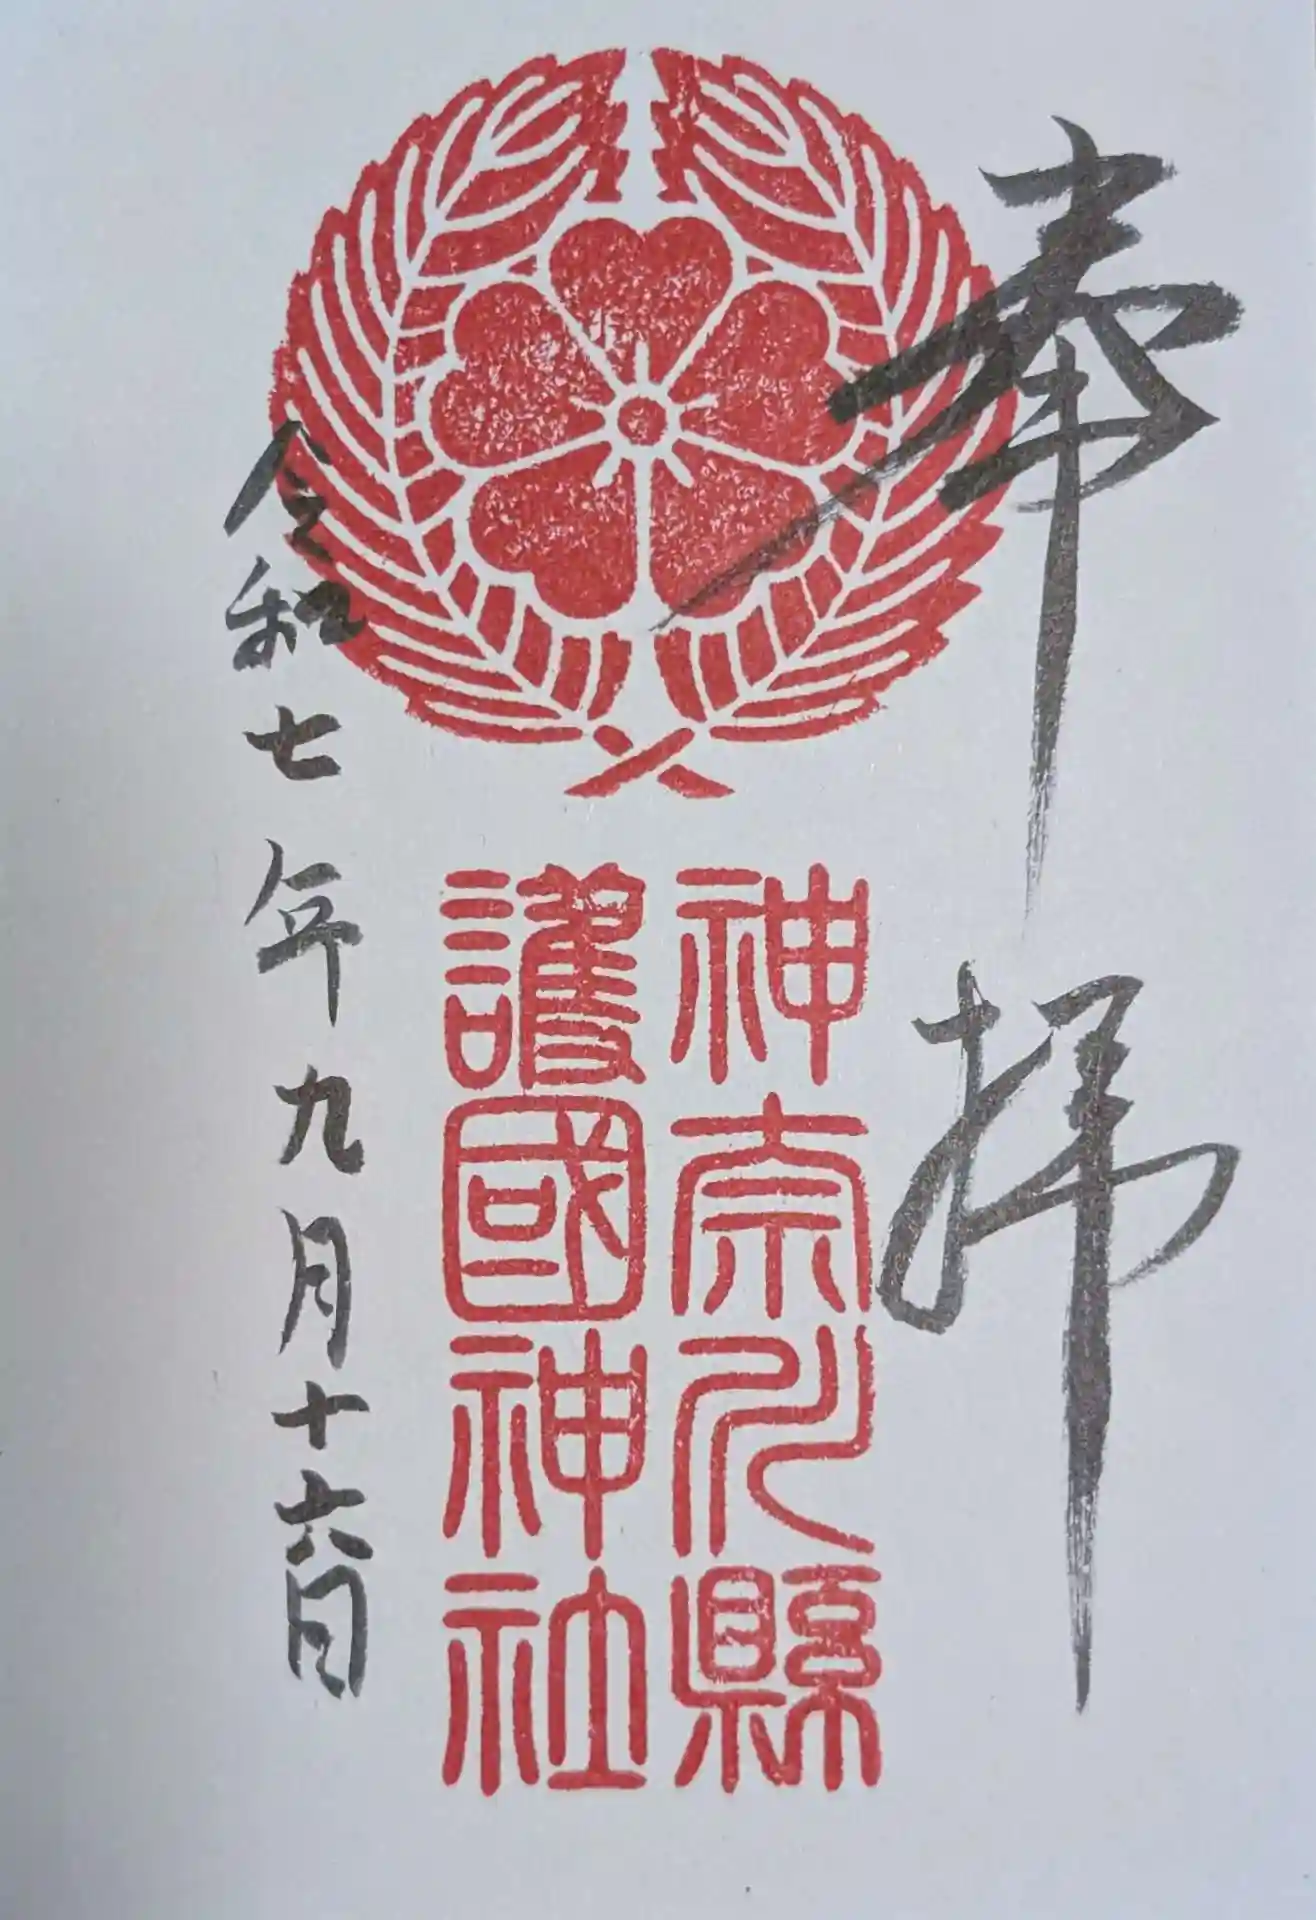 奉拝
神奈川縣
護國神社
令和七年九月十六日